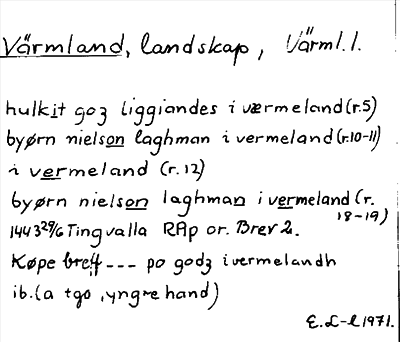 Värmland, landskap, Värml.l.
hulkit goʒ liggiandes i værmeland (r.5)
byørn nielson laghman i vermeland (r.10-11)
i vermeland (r.12)
byørn nielson laghman i vermeland (r. 18-19)
1443 29/6 Tingvalla RAp or. Brev 2.
Køpe breff --- po godʒ i vermelandh
ib. (a tgo, yngre hand)
E. L-l 1971.